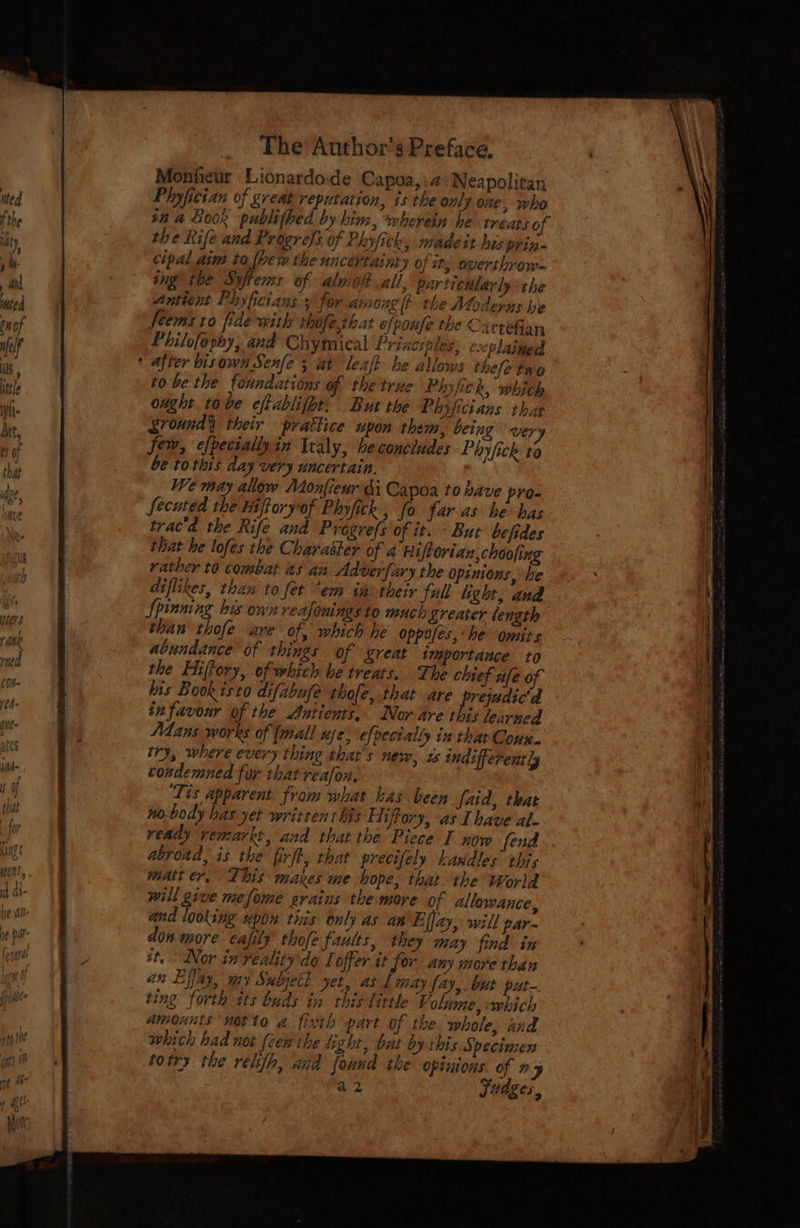 The Author's Preface.
Monsieur Lionardo de Capoa, a Neapolitan
Physician of great reputation, is the only one, who
in a Book published by him, wherein he treats of
the Rise and Progress of Physick, made it his prin-
cipal aim to shew the uncertainty of it, overthrow-
ing the Systems of almost all, particularly the
Antient Physicians; for amongst the Moderns he
seems to side with those, that espouse the Cartesian
Philosophy, and Chymical Principles, explained
after his own Sense; at least he allows these two
to be the foundations of the true Physick, which
ought to be establisht. But the Physicians that
ground their practice upon them, being very
few, especially in Italy, he concludes Physick to
be to this day very uncertain.
We may allow Monsieur di Capoa to have pro-
secuted the History of Physick, so far as he has
trac'd the Rise and Progress of it. But besides
that he loses the Character of a Historian, choosing
rather to combat as an Adversary the opinions, he
dislikes, than to set 'em in their full light, and
spinning his own reasonings to much greater length
than those are of, which he opposes, he omits
abundance of things of great importance to
the History, of which he treats. The chief use of
his Book is to disabuse those, that are prejudic'd
in favour of the Antients. Nor are this learned
Mans works of small use, especially in that Coun-
try, where every thing that's new, is indifferently
condemned for that reason.
'Tis apparent from what has been said, that
no-body has yet written this History, as I have al-
ready remarkt, and that the Piece I now send
abroad, is the first, that precisely handles this
matt er. This makes me hope, that the World
will give me some grains the more of allowance,
and looking upon this only as an Essay, will par-
don more easily those faults, they may find in
it. Nor in reality do I offer it for any more than
an Essay, my Subject yet, as I may say, but put-
ting forth its buds in this little Volume, which
amounts not to a sixth part of the whole, and
which had not seen the light, but by this Specimen
to try the relish, and found the opinions of my
a 2 Judges,